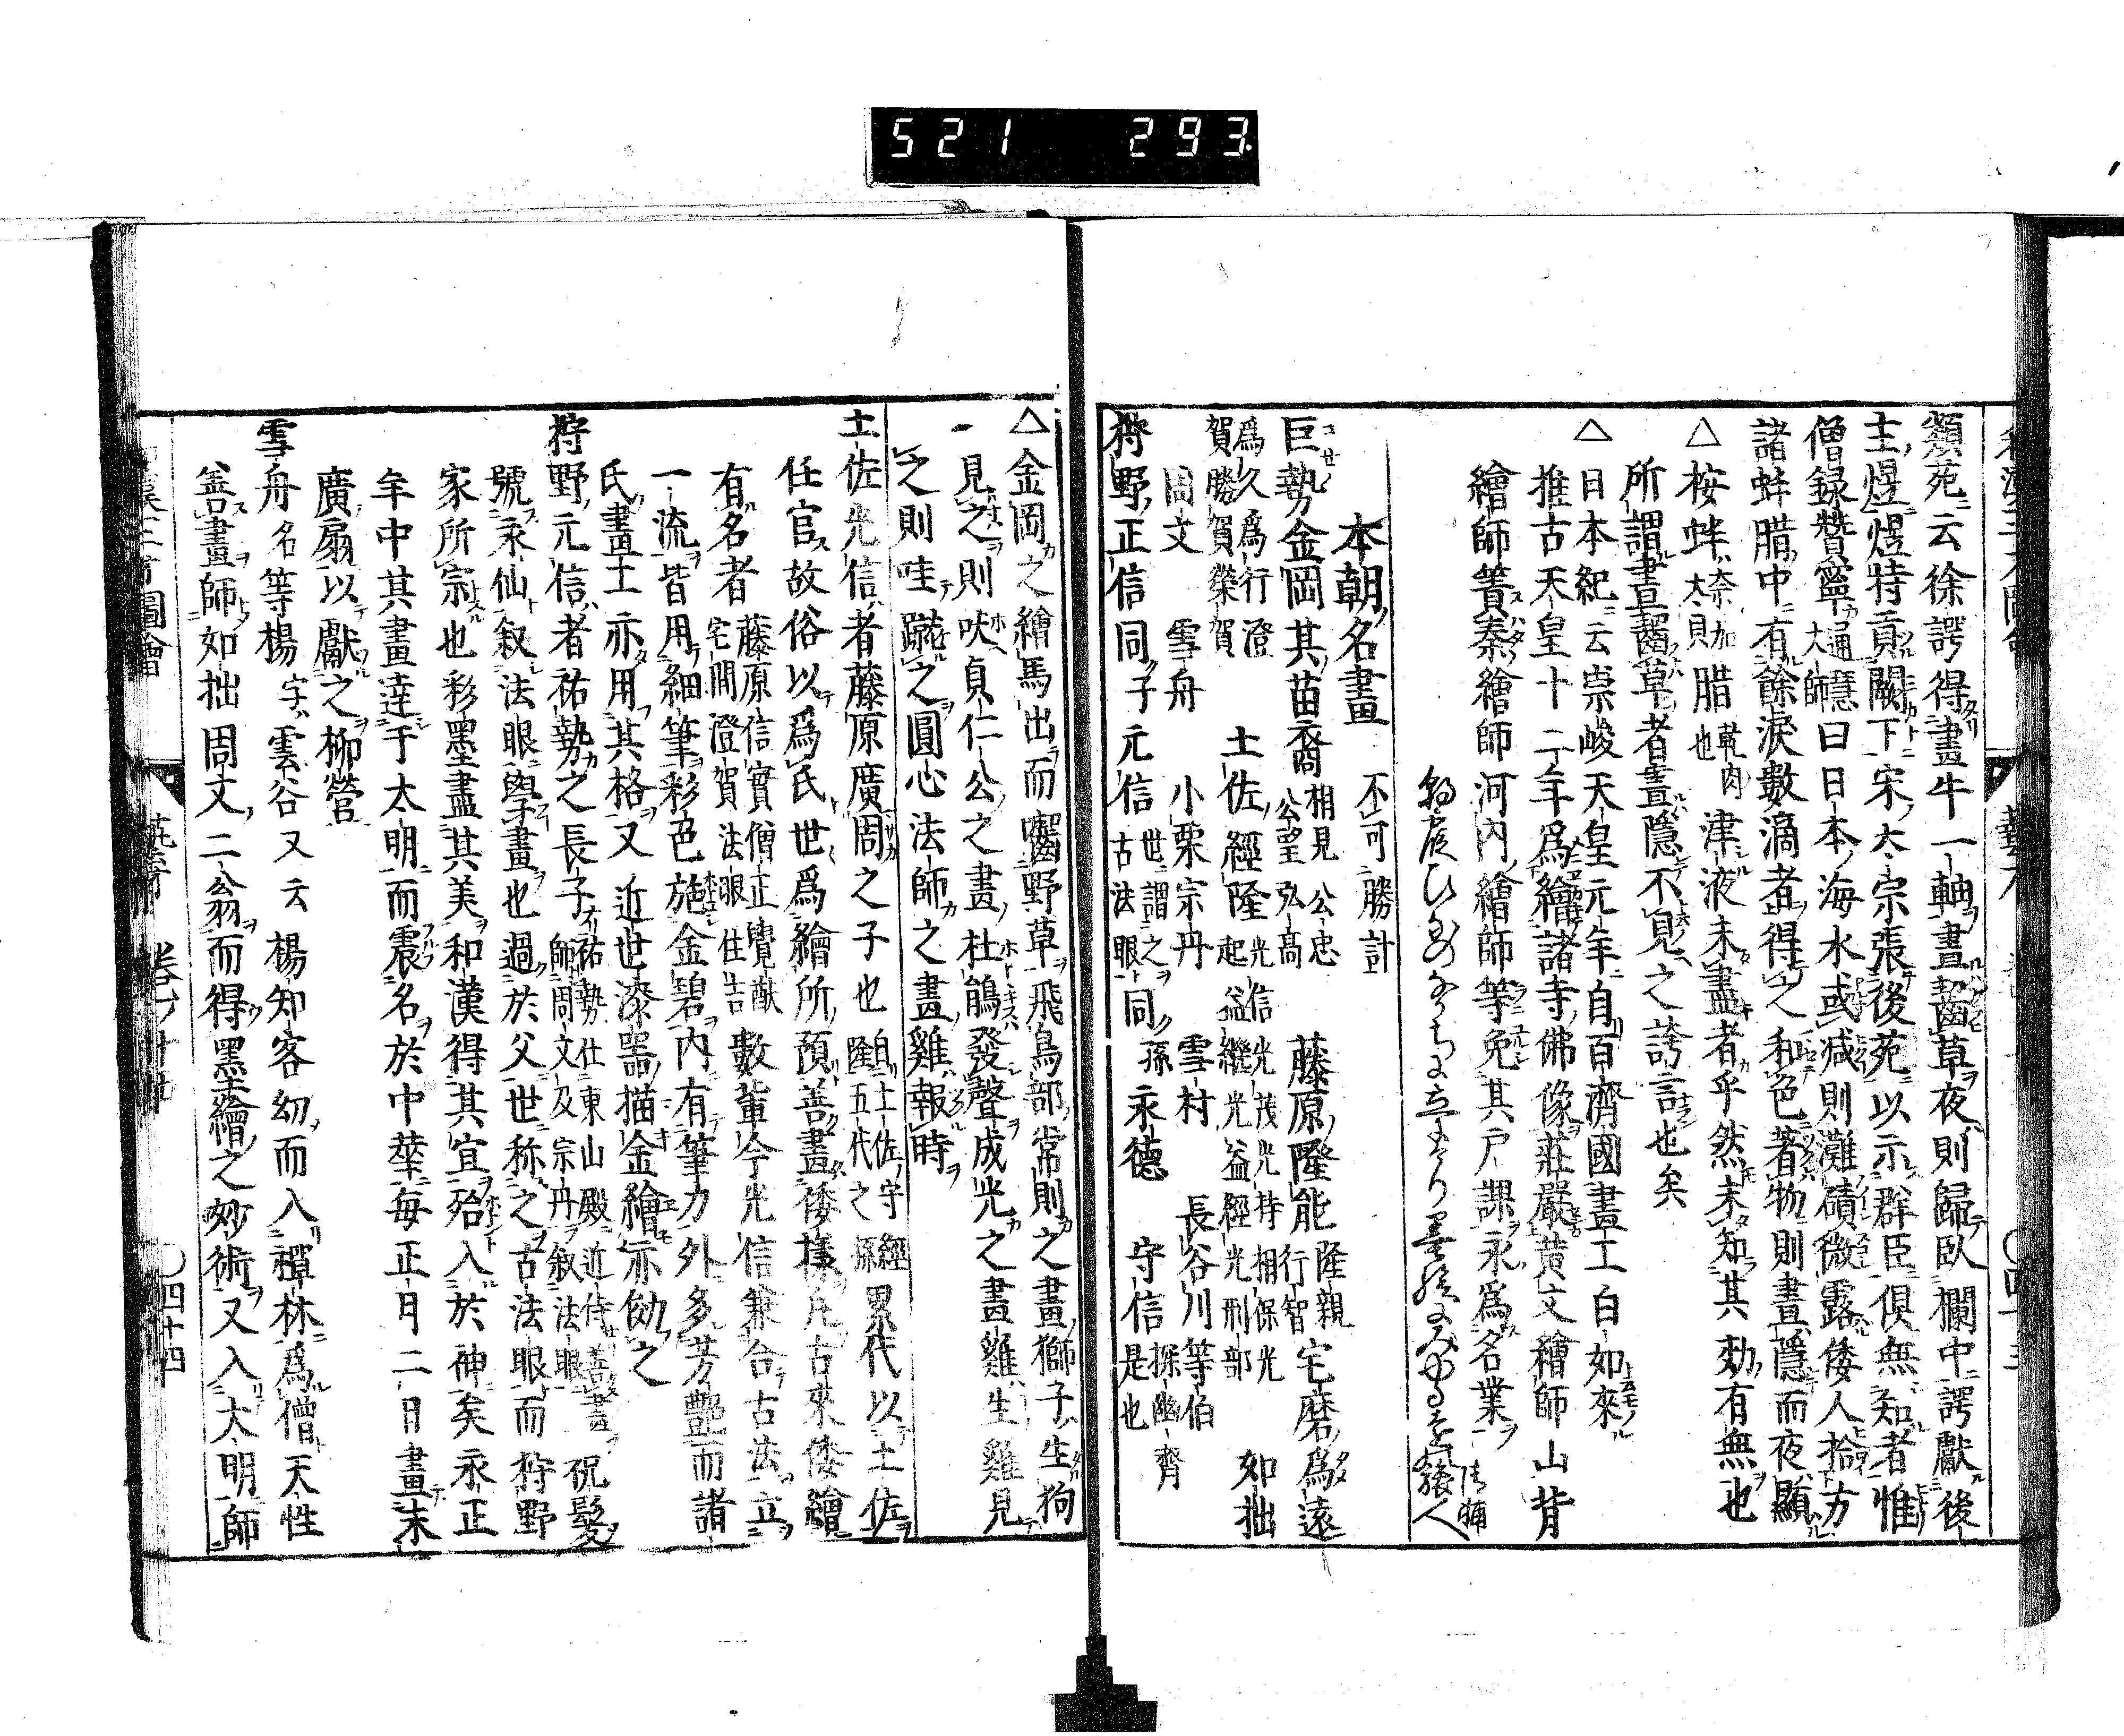 521 293
類苑云徐諤得畫牛一軸晝齧草夜則歸臥欄中諤獻後
主煜煜特貢闕下宋太宗張後苑以示群臣俱無知者惟
僧録贊寧通慧大師曰日本海水或減則灘磧微露倭人拾方
諸蚌腊中有餘涙數滴者得之和色著物則晝隱而夜顯
△按蚌奈加太貝腊乾肉也津液未盡者乎然未知其効有無也
所謂晝齧草者晝隱不見之誇言也矣
△日本紀云崇峻天皇元年自百濟國畫工白如來
推古天皇十二年爲繪諸寺佛像莊嚴黄文繪師山背
繪師簀秦繪師河内繪師等免其戸課永爲名業
本朝名畫 不可勝計
巨勢金岡其苗裔相見 公忠 公望 弘高 藤原隆能隆親 行智 宅磨爲遠
爲久爲行澄賀勝賀榮賀 土佐經隆光信 光茂光持 相保光起 益繼光益經光刑部 如拙
周文 雪舟 小栗宗丹 雪村 長谷川等伯
狩野正信同子元信世謂之古法眼同孫永德 守信探幽齊是也
△金岡之繪馬出而囓野草飛鳥部常則之畫獅子生狗
一見之則吠貞仁公之畫杜鵑發聲成光之畫雞生雞見
之則哇蹴之圓心法師之畫雞報時
土佐光信者藤原廣周之子也自土佐守經隆五代之孫累代以土佐
任官故俗以爲氏世爲繪所預善畫倭樣凡古來倭繪
有名者藤原信實僧正覺猷宅間澄賀法眼住吉數輩今光信兼合古法立
一流皆用細筆彩色施金碧内有筆力外多芳艷而諸
氏畫士亦用其格又近世漆器描金繪亦傚之
狩野元信者祐勢之長子祐勢仕東山殿近侍善畫師周文及宗丹叙法眼祝髮
號永仙叙法眼學畫也過於父世称之古法眼而狩野
家所宗也彩墨盡其美和漢得其宜殆入於神矣永正
年中其畫達于太明而震名於中華毎正月二日畫末
廣扇以獻之柳營
雪舟名等楊字雲谷又云楊知客幼而入禪林爲僧天性
善畫師如拙周文二翁而得墨繪之妙術又入大明師
圖會 藝才 四十四